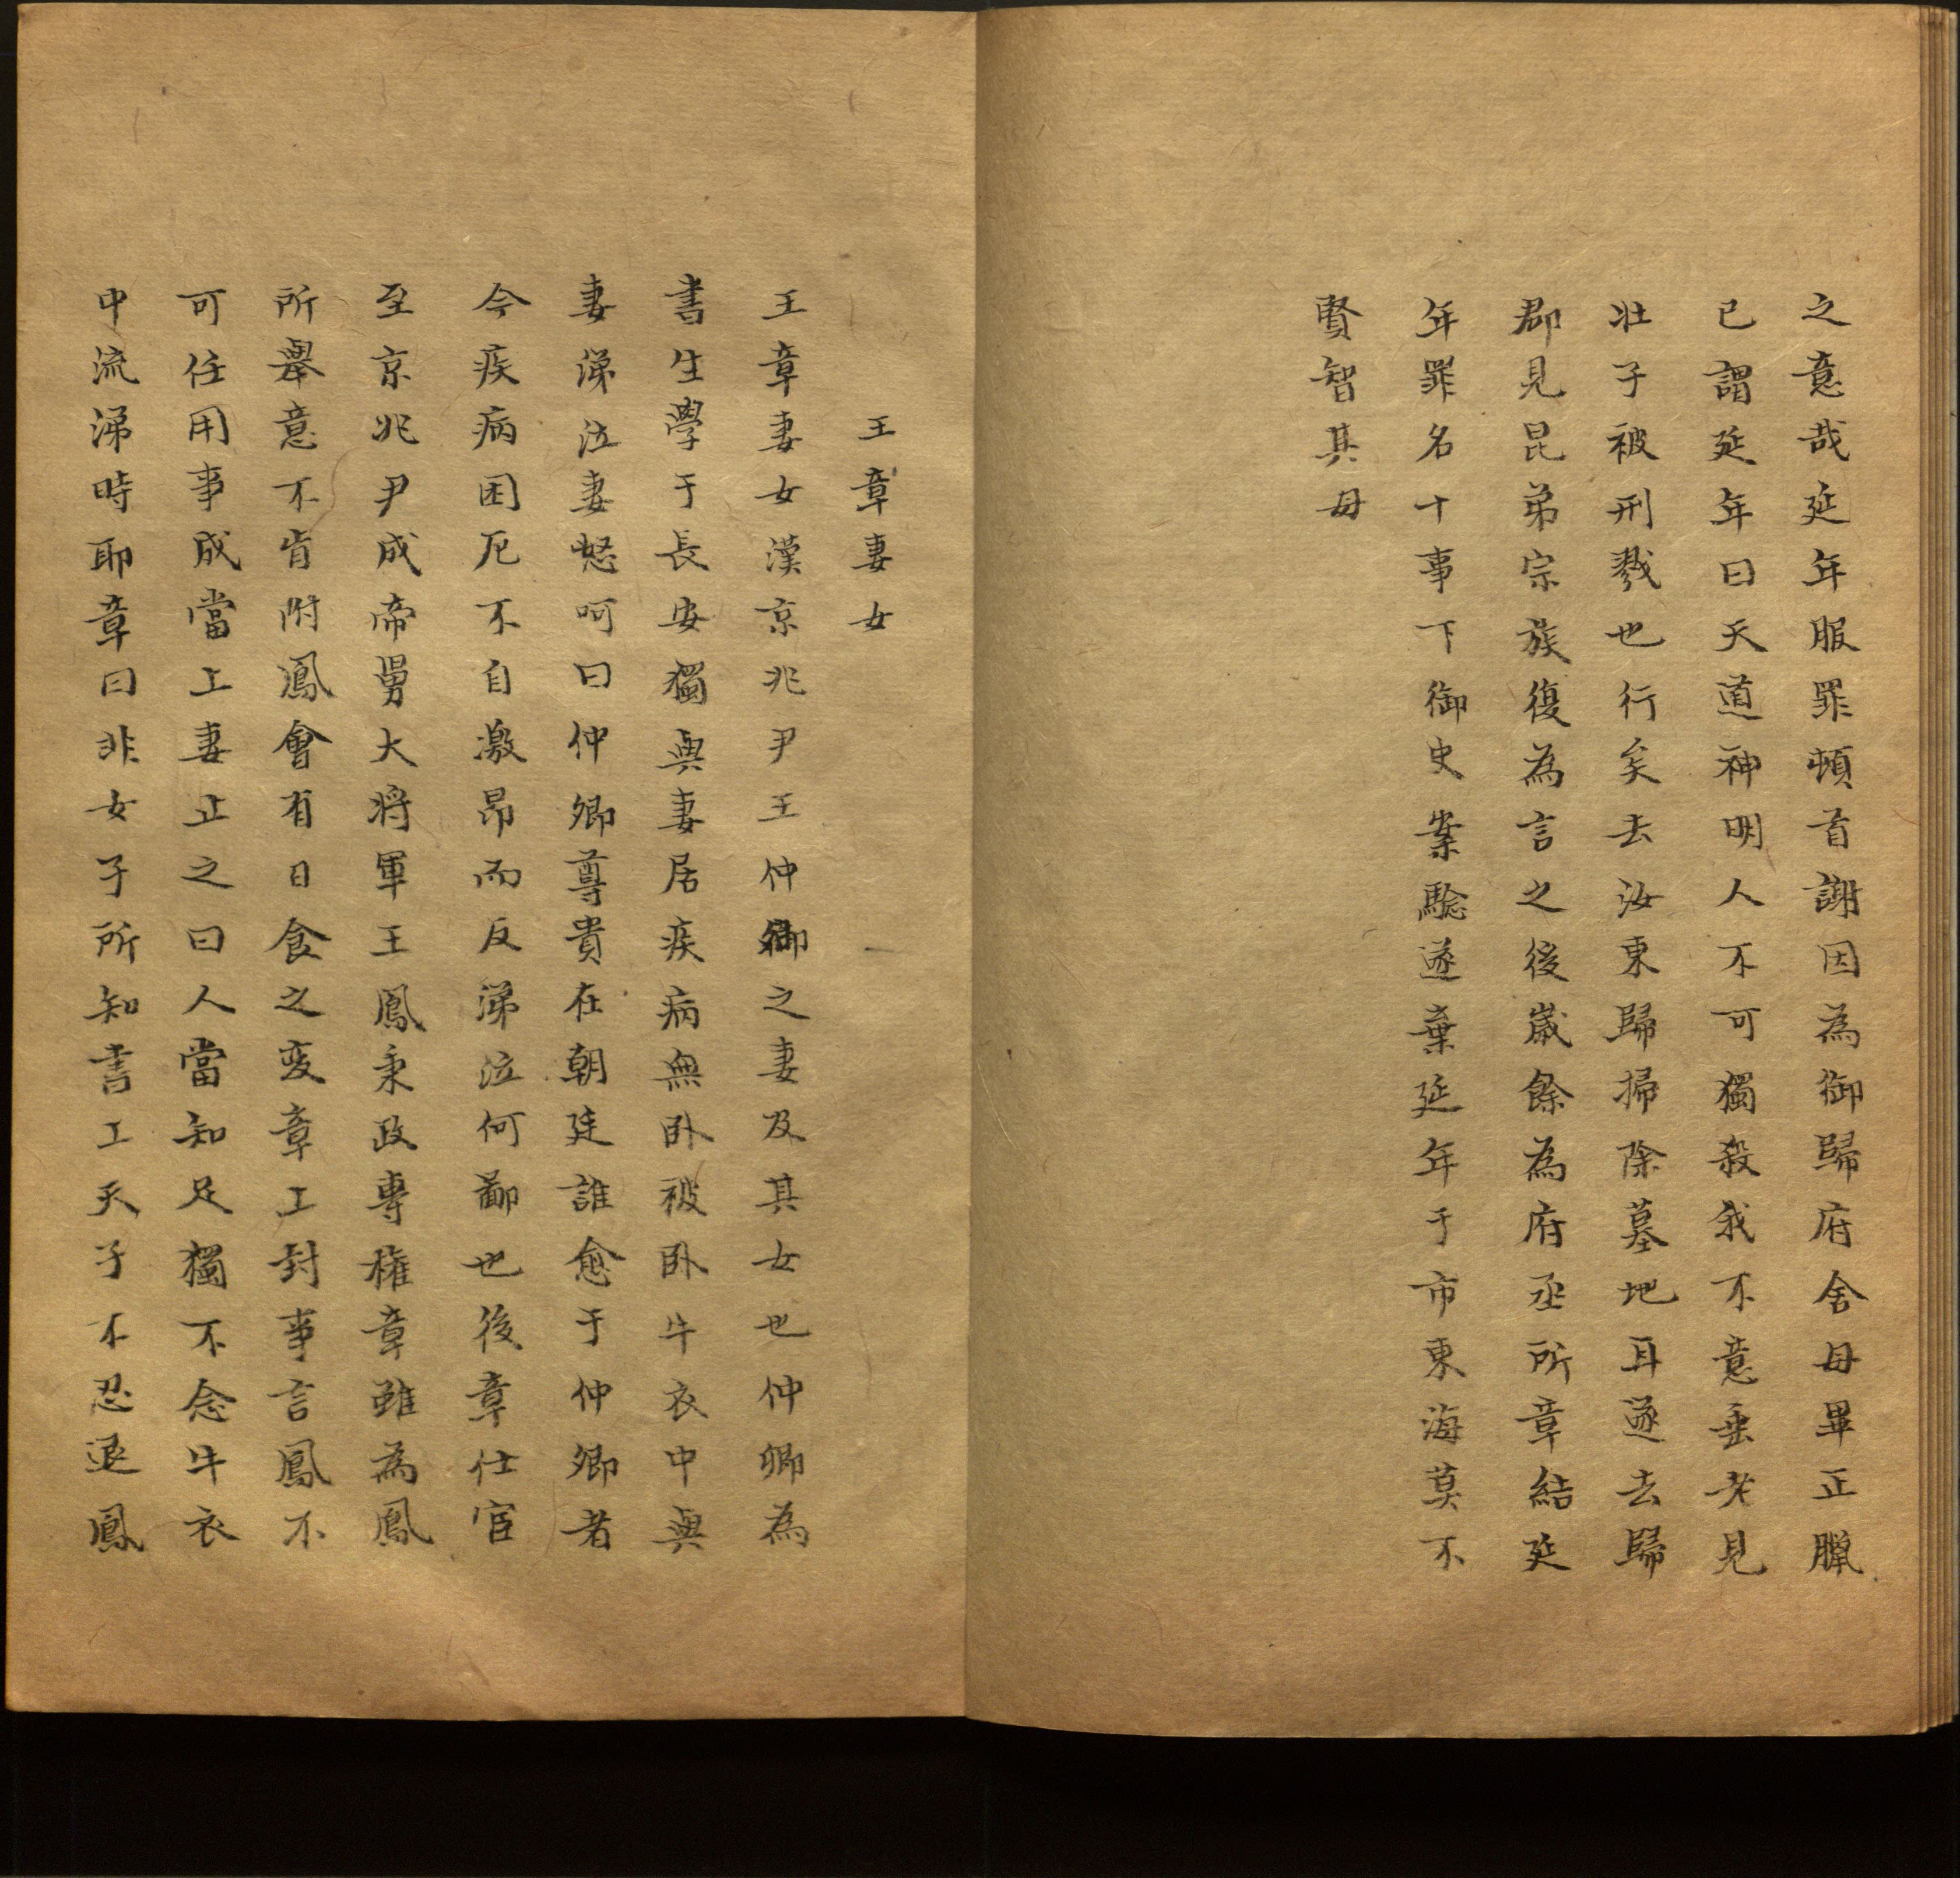 之意哉延年服罪頓首謝因為御歸府舍母畢正臘
已謂延年曰天道神明人不可獨殺我不意垂老見
壯子被刑戮也行矣去汝東歸掃除墓地耳遂去歸
郡見昆弟宗族復為言之後歲餘為府丞所章結延
年罪名十事下御史案騐遂棄延年于市東海莫不
賢智其母
王章妻女
王章妻女漢京兆尹王仲卿之妻及其女也仲卿為
書生學于長安獨與妻居疾病無臥被臥牛衣中與
妻涕泣妻怒呵曰仲卿尊貴在朝廷誰愈于仲卿者
今疾病困厄不自激昂而反涕泣何鄙也後章仕宦
至京兆尹成帝舅大將軍王鳳秉政專權章雖為鳳
所舉意不肯附鳳會有日食之変章上封事言鳳不
可任用事成當上妻止之曰人當知足獨不念牛衣
中流涕時耶章曰非女子所知書上天子不忍退鳳